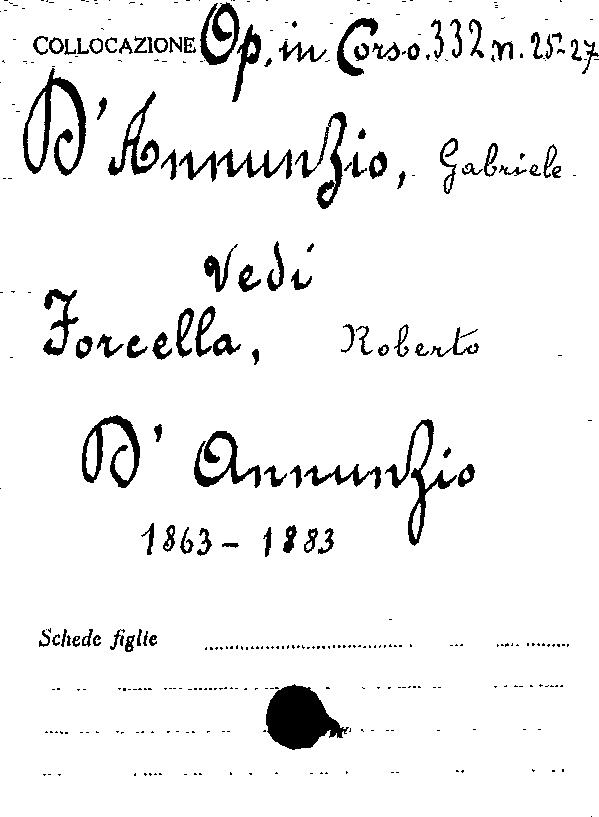 COLLOCAZIONE Op. in Corso. 332 n. 25-27
D'Annunzio, Gabriele
Vedi
Forcella, Roberto
D'Annunzio
1863 - 1883
Schede figlie